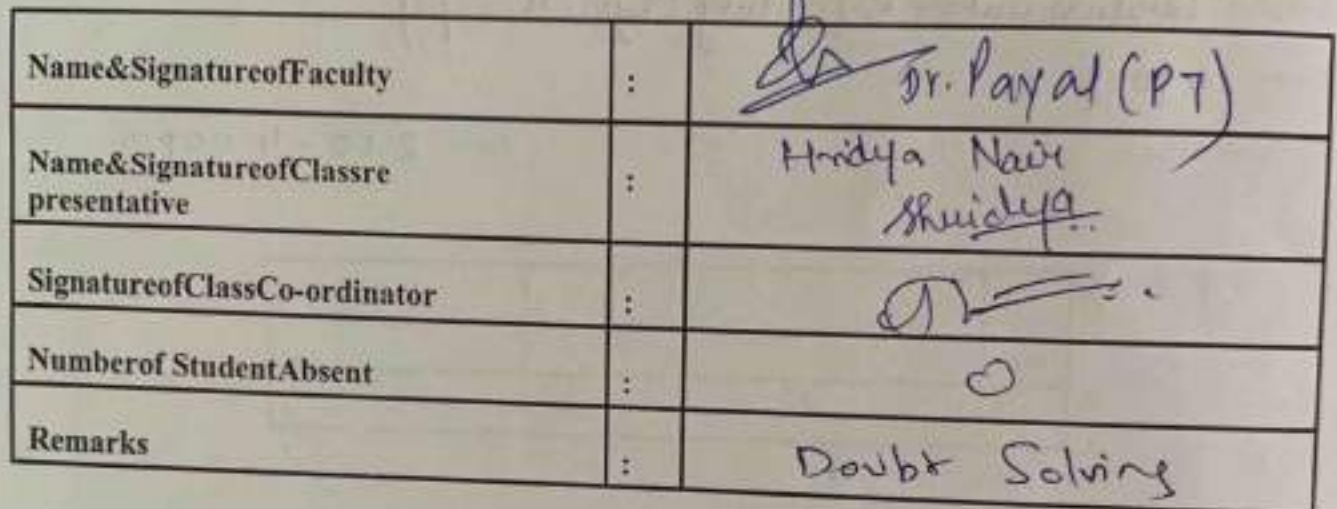 Name&SignatureofFaculty : Dr. Payal (PT)
Name&SignatureofClassre : Hridya Nair
presentative
SignatureofClassCo-ordinator :
Numberof StudentAbsent : 0
Remarks : Doubt Solving